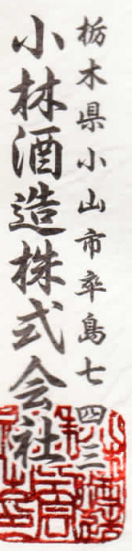 栃木県小山市卒島七四三
小林酒造株式会社